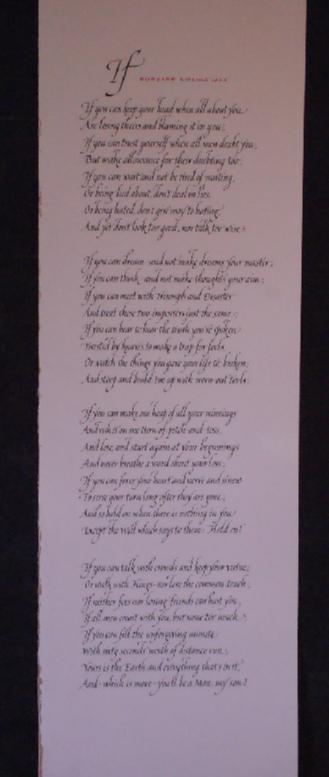 If
If you can keep your head when all about you
Are losing theirs and blaming it on you;
If you can trust yourself when all men doubt you,
But make allowance for their doubting too:
If you can wait and not be tired of waiting,
Or being lied about, don't deal in lies,
Or being hated, don't give way to hating,
And yet don't look too good, nor talk too wise:
If you can dream - and not make dreams your master;
If you can think - and not make thoughts your aim;
If you can meet with Triumph and Disaster
And treat those two impostors just the same:
If you can bear to hear the truth you've spoken
Twisted by knaves to make a trap for fools,
Or watch the things you gave your life to, broken,
And stoop and build 'em up with worn-out tools:
If you can make one heap of all your winnings
And risk it on one turn of pitch-and-toss,
And lose, and start again at your beginnings
And never breathe a word about your loss:
If you can force your heart and nerve and sinew
To serve your turn long after they are gone,
And so hold on when there is nothing in you
Except the Will which says to them: "Hold on!"
If you can talk with crowds and keep your virtue,
Or walk with Kings - nor lose the common touch,
If neither foes nor loving friends can hurt you,
If all men count with you, but none too much:
If you can fill the unforgiving minute
With sixty seconds' worth of distance run,
Yours is the Earth and everything that's in it,
And - which is more - you'll be a Man, my son!